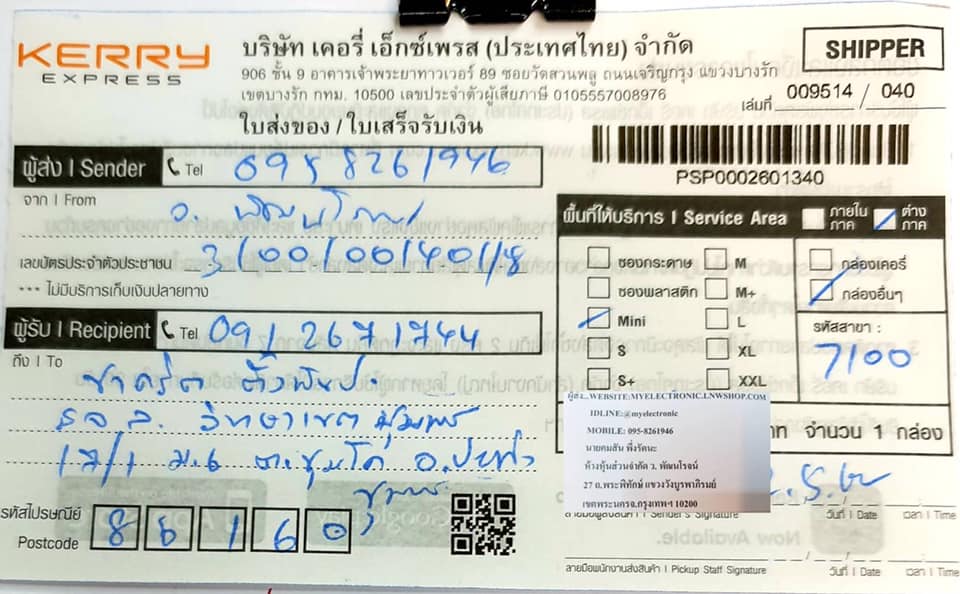 KERRY
EXPRESS
บริษัท เคอรี่ เอ็กซ์เพรส (ประเทศไทย) จำกัด
906 ชั้น 9 อาคารเจ้าพระยาทาวเวอร์ 89 ซอยวัดสวนพลู ถนนเจริญกรุง แขวงบางรัก
เขตบางรัก กทม. 10500 เลขประจำตัวผู้เสียภาษี 0105557008976
SHIPPER
เล่มที่ 009514 / 040
ใบส่งของ / ใบเสร็จรับเงิน
PSP0002601340
ผู้ส่ง I Sender Tel 0958261946
จาก I From
เลขบัตรประจำตัวประชาชน 3/00/00/40/18
*** ไม่มีบริการเก็บเงินปลายทาง
ผู้รับ I Recipient Tel 091 2671744
ถึง I To
วิทยาเขต ชุมพร
17/1 ม.6 ต.ชุมโค อ.ปะทิว
ชุมพร
รหัสไปรษณีย์
Postcode 86160
พื้นที่ให้บริการ I Service Area ภายในภาค ต่างภาค
ซองกระดาษ M กล่องเคอรี่
ซองพลาสติก M+ กล่องอื่นๆ
Mini L รหัสสาขา :
S XL 7100
S+ XXL
WEBSITE:MYELECTRONIC.LNWSHOP.COM
IDLINE:@myelectronic
MOBILE: 095-8261946
นายคมสัน พึ่งรัตนะ
ห้างหุ้นส่วนจำกัด ว. พัฒนโรจน์
27 ถ.พระพิทักษ์ แขวงวังบูรพาภิรมย์
เขตพระนคร จ.กรุงเทพฯ 10200
จำนวน 1 กล่อง
Sender's Signature วันที่ I Date เวลา I Time
ลายมือพนักงานส่งสินค้า I Pickup Staff Signature วันที่ I Date เวลา I Time